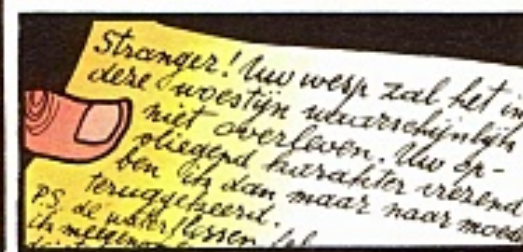 Stranger! Uw wesp zal het in
dere woestijn waarschijnlijk
niet overleven. Uw op-
vliegend karakter vrezend
ben ik dan maar naar moeder
teruggekeerd.
P.S. de waterflessen heb
ik meegenomen